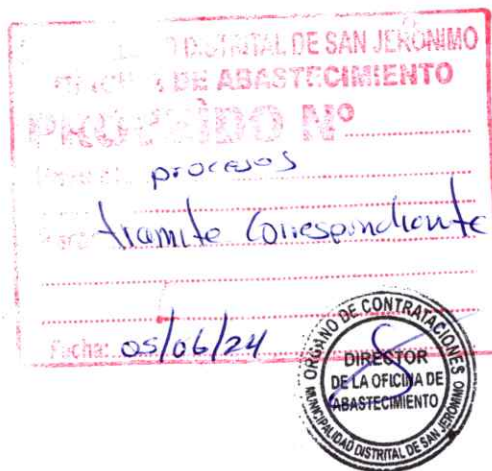 DISTRITAL DE SAN JERÓNIMO
DE ABASTECIMIENTO
PROVEÍDO Nº
procesos
tramite Correspondiente
Fecha: 05/06/24
ORGANO DE CONTRATACIONES
DIRECTOR
DE LA OFICINA DE
ABASTECIMIENTO
MUNICIPALIDAD DISTRITAL DE SAN JERÓNIMO